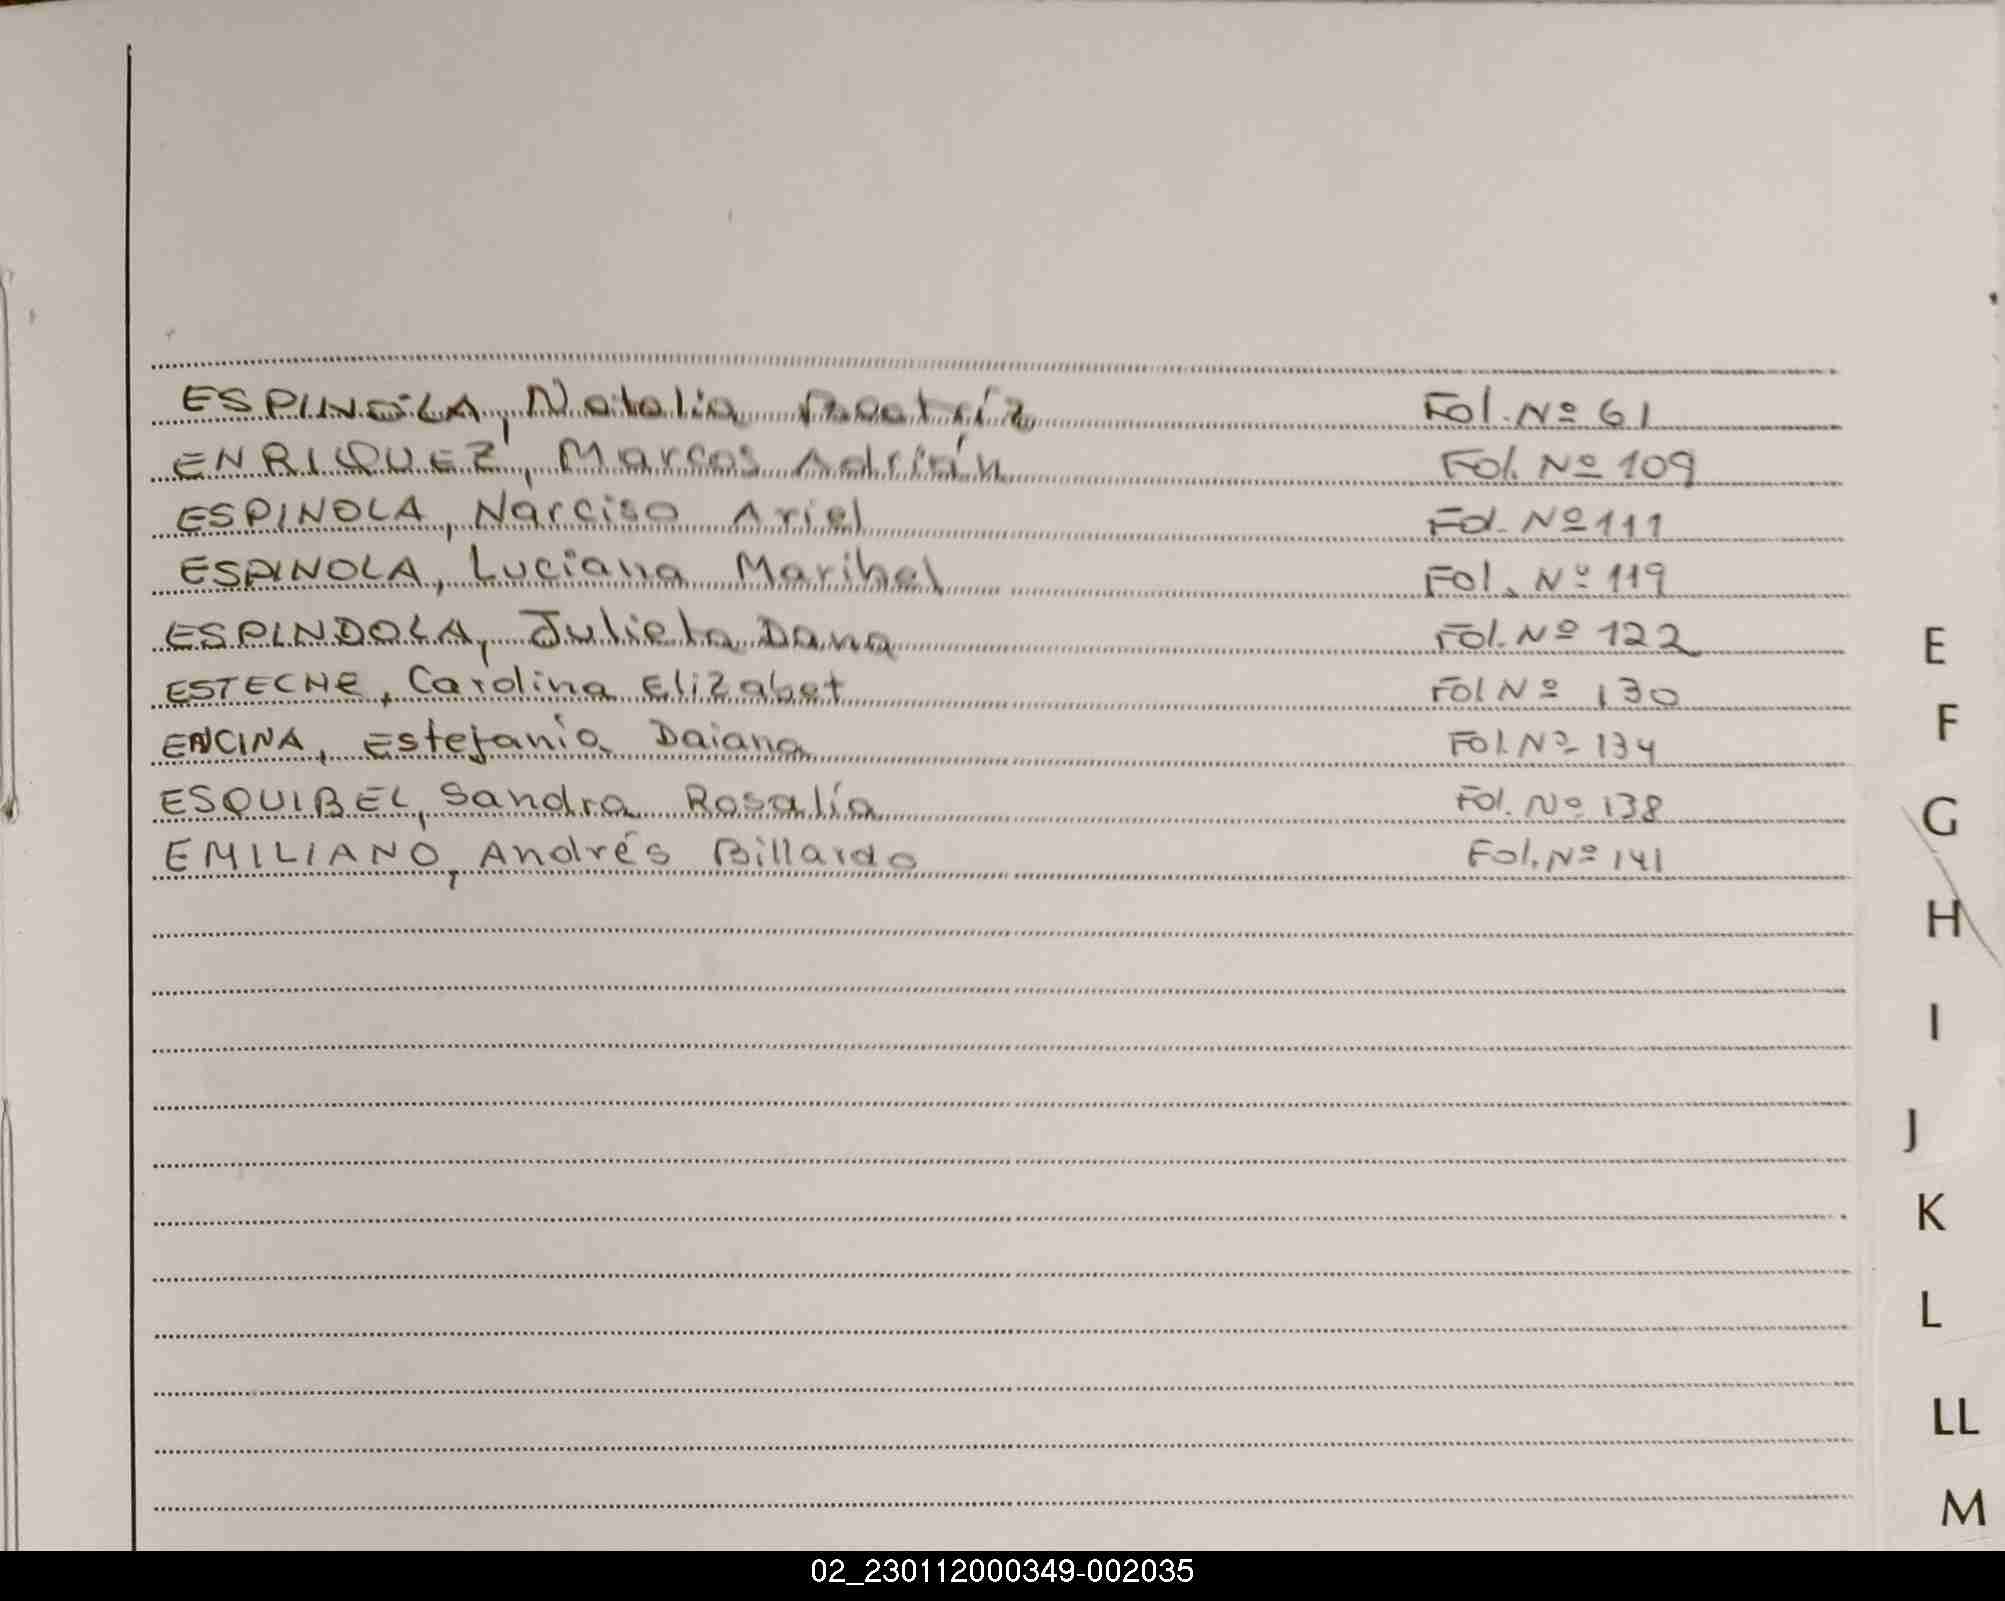 ESPINOLA, Natalia Beatriz Fol. Nº 61
ENRIQUEZ, Marcos Adrián Fol. Nº 109
ESPINOLA, Narciso Ariel Fol. Nº 111
ESPINOLA, Luciana Maribel Fol. Nº 119
ESPINDOLA, Julieta Dana Fol. Nº 122
ESTECHE, Carolina Elizabet Fol Nº 130
ENCINA, Estefanía Daiana Fol. Nº 134
ESQUIBEL, Sandra Rosalía Fol. Nº 138
EMILIANO, Andrés Billardo Fol. Nº 141
E
F
G
H
I
J
K
L
LL
M
02_230112000349-002035